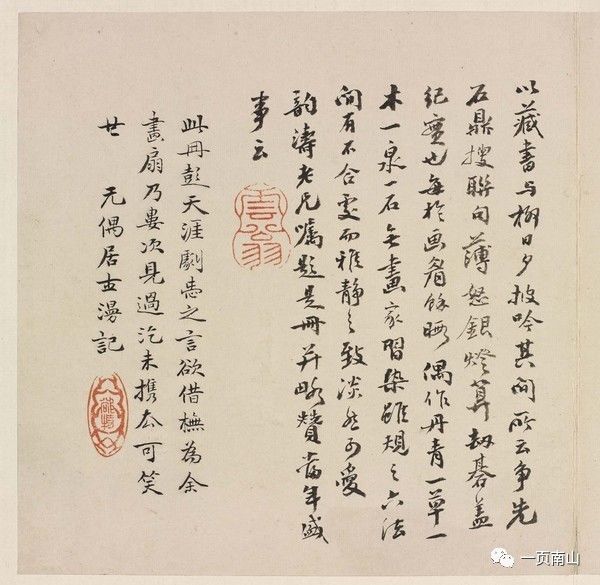 以藏書與柳日夕披吟其間所云爭先
石鼎搜聯句薄怒銀燈算劫碁蓋
紀實也每於画眉餘暇偶作丹青一草一
木一泉一石無畫家習染雖規之六法
間有不合處而雅靜之致淡然可愛
韵濤老兄囑題是冊并略贊當年盛
事云
雲翁
此冊彭天涯劇患之言欲借橅為余
畫扇乃婁次見過汔未携厺可笑
廿 无偶居士漫記
一页南山